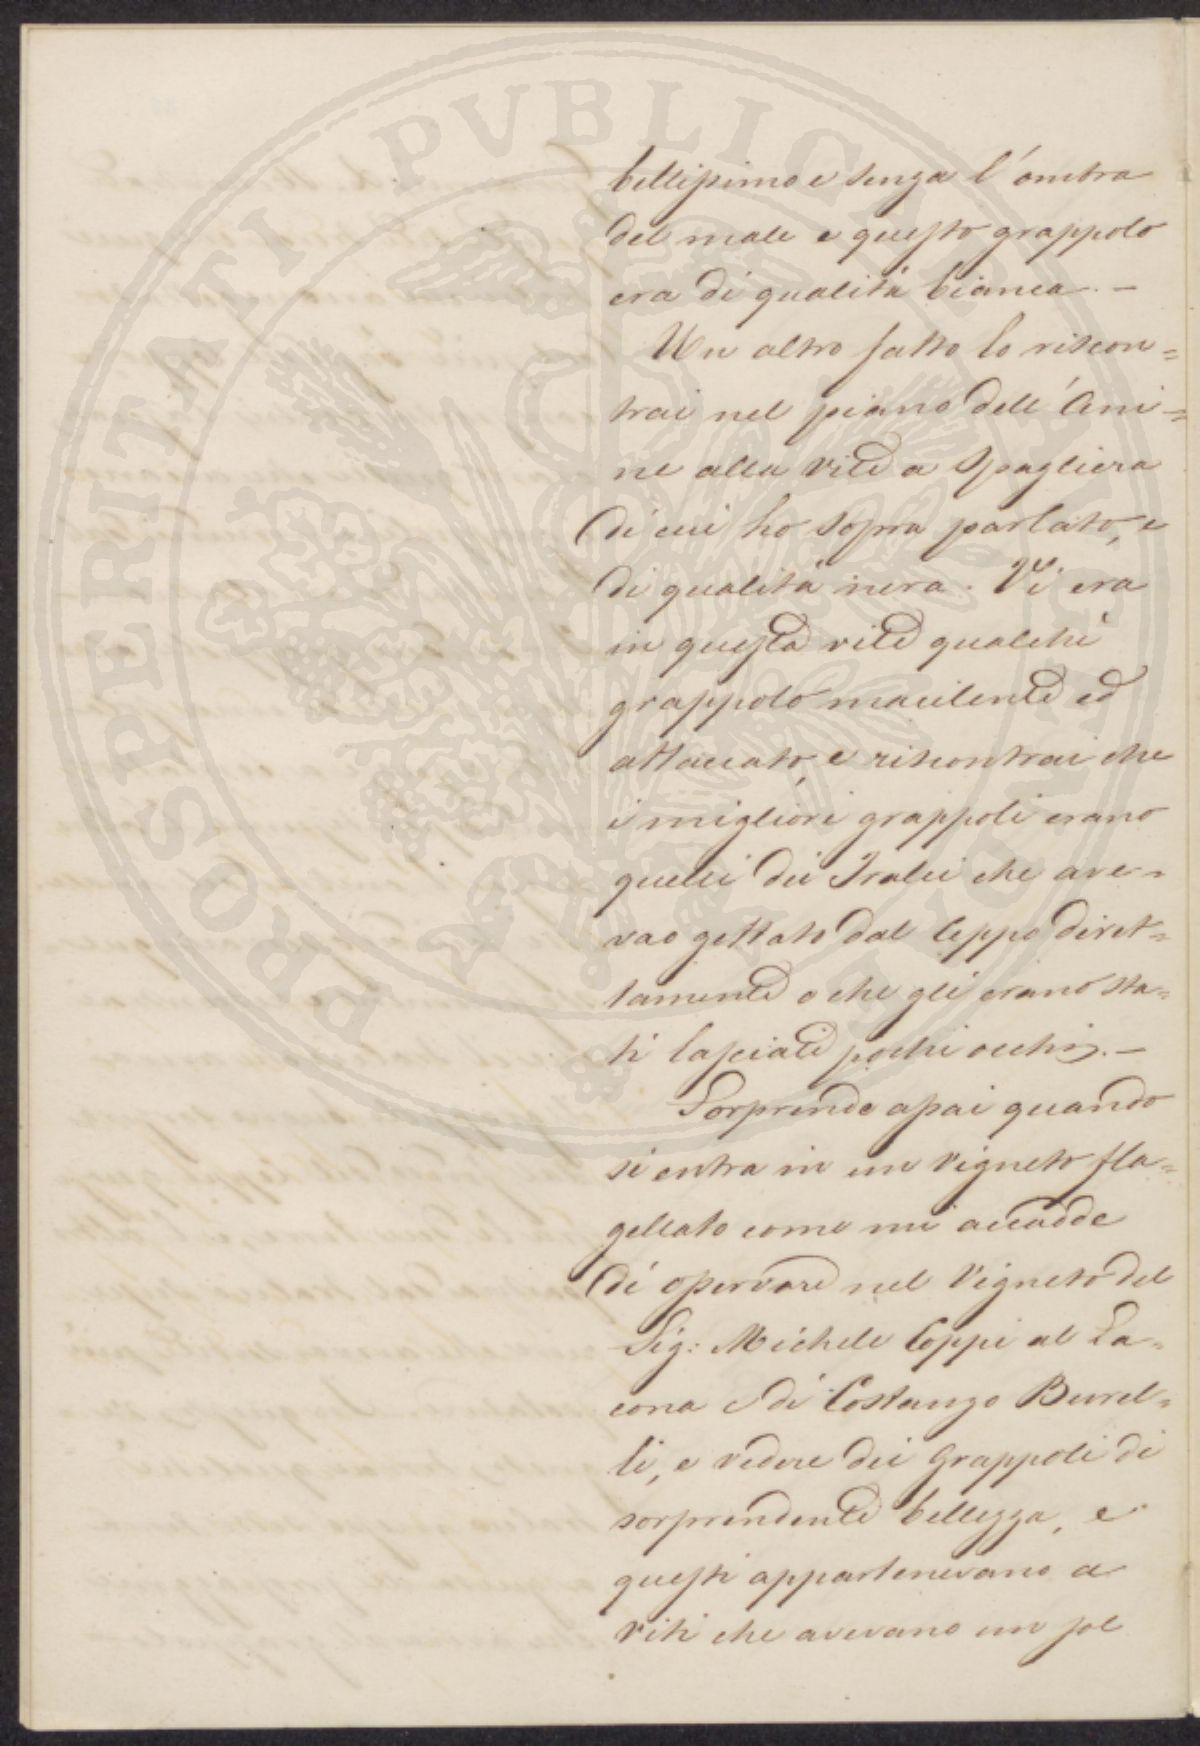 PROSPERITATI PVBLICAE AVGENDAE
bellissimo e senza l'ombra
del male e questo grappolo
era di qualità bianca. —
Un altro fatto lo riscon=
trai nel piano dell'Ami=
ne alla vite a Spagliera
di cui ho sopra parlato, e
di qualità nera. Vi era
in questa vite qualche
grappolo macilente ed
attaccato, e riscontrai che
i migliori grappoli erano
quelli dei Tralci che ave=
vao gettato dal Ceppo diret=
tamente o che gli erano sta=
ti lasciati pochi occhi. —
Sorprende assai quando
si entra in un Vigneto fla=
gellato come mi accadde
di osservare nel Vigneto del
Sig: Michele Coppi al La=
cona e di Costanzo Burel=
li, e vedere dei Grappoli di
sorprendente bellezza, e
questi appartenevano a
viti che avevano un sol